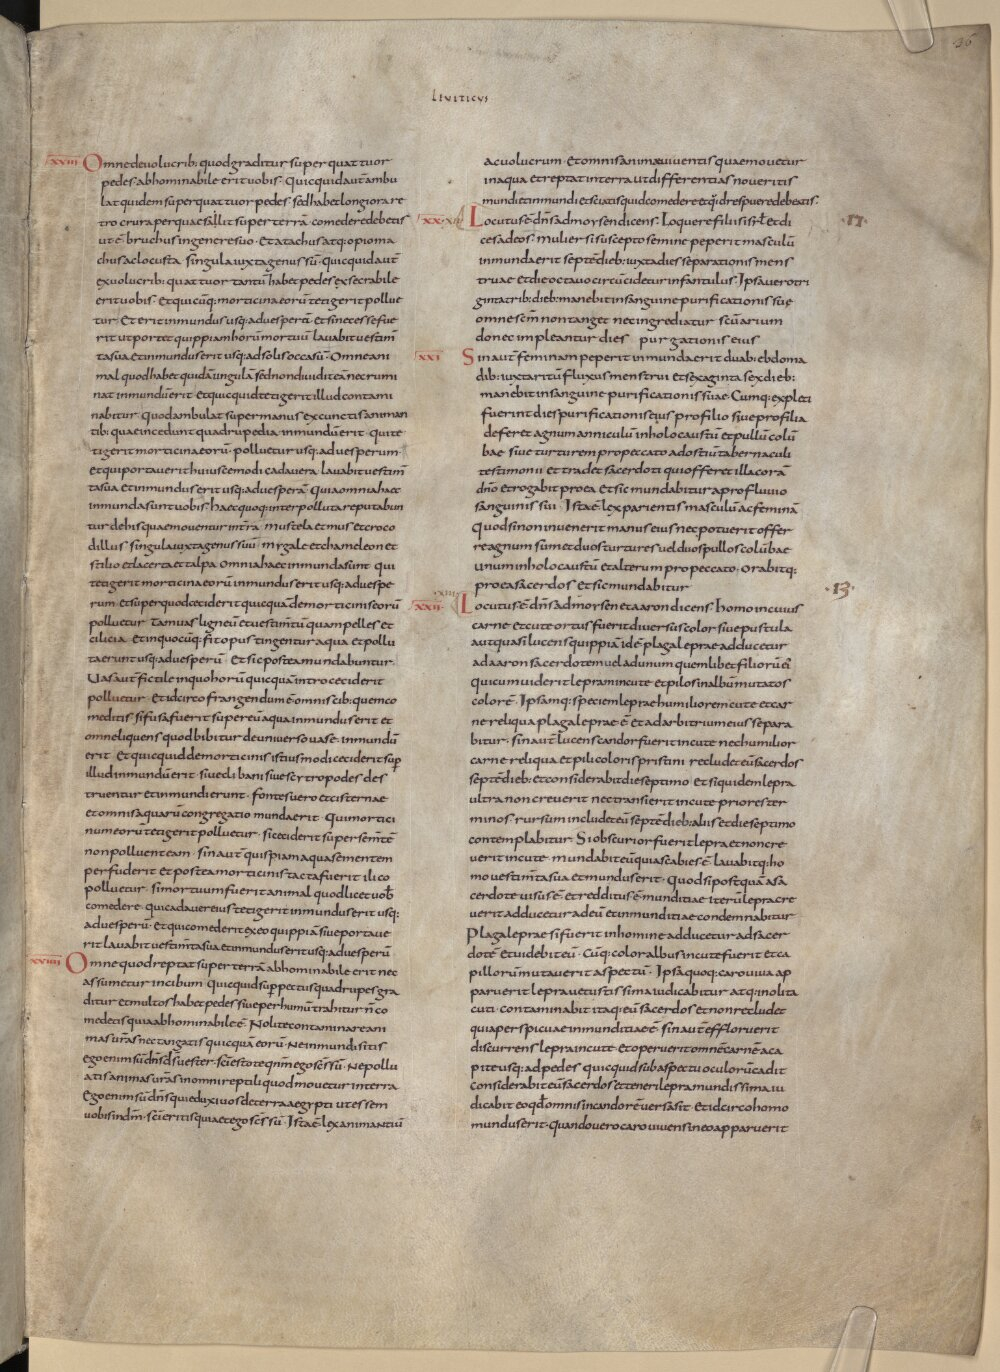 36
LEVITICVS
XXIII Omne de volucrib; quod graditur super quattuor
pedes abhominabile erit vobis. Quicquid aut ambu
lat quidem super quattuor pedes. sed habet longiora re
tro crura per quae salit super terrā. comedere debetis
ut ē bruchus in genere suo. Et atachus atq; opioma
chus ac locusta singula iuxta genus suū. Quicquid aut
ex volucrib; quattuor tantū habet pedes exsecrabile
erit vobis. Et quicūq; morticina eorū tetigerit pollue
tur. Et erit inmundus usq; ad vesperā. Et si necesse fue
rit ut portet quippiam horū mortuū lavabit vestim̄
ta sua et inmundus erit usq; ad solis occasū. Omne ani
mal quod habet quidā ungulā sed non dividit eā nec rumi
nat inmundū erit. Et quicquid tetigerit illud contami
nabitur. Quod ambulat super manus ex cunctis animan
tib; quae incedunt quadrupedia inmundū erit. Qui te
tigerit morticina eorū. polluetur usq; ad vesperum.
et qui portaverit huiuscemodi cadavera. lavabit vestim̄
ta sua et inmundus erit usq; ad vesperā. Quia omnia haec
inmunda sunt vobis. Haec quoq; inter polluta reputabun
tur de his quae moventur in tr̄ra. Mustela et mus et croco
dillus. singula iuxta genus suū. mygale et chameleon et
stilio et lacerta et talpa. Omnia haec inmunda sunt qui
tetigerit morticina eorū inmundus erit usq; ad vespe
rum. et super quod ceciderit quicquā de morticinis eorū
polluetur. Tam vas ligneū et vestim̄tū quam pelles et
cilicia. Et in quocūq; fit opus tingentur aqua et pollu
ta erunt usq; ad vesperū. Et sic postea mundabuntur.
Vas aut fictile in quo horū quicquā intro ceciderit
polluetur. Et idcirco frangendum ē omnis cib; quem co
meditis si fusa fuerit super eū aqua inmundus erit et
omne liquens quod bibitur de universo vase. inmundū
erit. Et quicquid de morticinis istiusmodi ceciderit sup̄
illud inmundū erit. sive clibani sive scytropodes des
truentur et inmundi erunt. fontes vero et cisternae
et omnis aquarū congregatio munda erit. Qui mortici
num eorū tetigerit polluetur. si ceciderit super sem̄tē
non polluent eam. sin aut quispiam aqua sementem
perfuderit et postea morticinis tacta fuerit ilico
polluetur. si mortuum fuerit animal quod licet vob̄
comedere. qui cadaver eius tetigerit inmundus erit usq;
ad vesperū. et qui comederit ex eo quippiā sive portave
rit lavabit vestim̄ta sua et inmundus erit usq; ad vesperū
XXIIII Omne quod reptat super terrā abhominabile erit nec
assumetur in cibum. Quicquid sup̄ pectus quadrupes gra
ditur et multos habet pedes sive per humū trahitur n̄ co
medetis quia abhominabile ē. Nolite contaminare ani
mas vr̄as nec tangatis quicquā eorū. Ne inmundi sitis
ego enim sū dn̄s d̄s vester. sc̄i estote qn̄m ego sc̄s sū. Ne pollu
atis animas vr̄as in omni reptili quod movetur in terra.
Ego enim sū dn̄s qui eduxi vos de terra aegypti ut essem
vobis in dm̄. sc̄i eritis quia et ego sc̄s sū. Ista ē lex animantiū
ac volucrum. Et omnis animae viventis quae movetur
in aqua et reptat in terra ut differentias noveritis
mundi et inmundi et sciatis quid comedere et qd̄ respuere debeatis.
XX Locutus ē dn̄s ad moysen dicens. Loquere filiis isrl̄ et di
12
ces ad eos. Mulier si suscepto semine peperit masculū
inmunda erit septē dieb; iuxta dies separationis mens
truae et die octavo circūcidetur infantulus. Ipsa vero tri
ginta trib; dieb; manebit in sanguine purificationis suę
omne scm̄ non tanget nec ingredietur sc̄uarium
donec impleantur dies purgationis eius
XXI Sin aut feminam peperit inmunda erit duab; ebdoma
dib; iuxta ritū fluxus menstrui et sexaginta sex dieb;
manebit in sanguine purificationis suae. Cumq; expleti
fuerint dies purificationis eius pro filio sive pro filia
deferet agnum anniculū in holocaustū et pullū colū
bae sive turturem pro peccato ad ostiū tabernaculi
testimonii et tradet sacerdoti qui offeret illa corā
dn̄o et rogabit pro ea. Et sic mundabitur a profluvio
sanguinis sui. Ista ē lex parientis masculū ac feminā
Quod si non invenerit manus eius nec potuerit offer
re agnum sumet duos turtures vel duos pullos colūbae
unum in holocaustū et alterum pro peccato. Orabitq;
pro ea sacerdos et sic mundabitur
XXII Locutus ē dn̄s ad moysen et aaron dicens. Homo in cuius
13
carne et cute ortus fuerit diversus color sive pustula
aut quasi lucens quippiā id ē plaga leprae adducetur
ad aaron sacerdotem vel ad unum quemlibet filiorū ei'
Qui cum viderit lepram in cute et pilos in albū mutatos
colorē. Ipsamq; speciem leprae humiliorem cute et car
ne reliqua plaga leprae ē. Et ad arbitrium eius separa
bitur. sin aut lucens candor fuerit in cute nec humilior
carne reliqua et pili coloris pristini recludet eū sacerdos
septē dieb; et considerabit die septimo. Et si quidem lepra
ultra non creverit nec transierit in cute priores ter
minos. rursum includet eū septē dieb; aliis et die septimo
contemplabitur. Si obscurior fuerit lepra et non cre
verit in cute. mundabit eū quia scabies ē. lavabitq; ho
mo vestim̄ta sua et mundus erit. Quod si postquā a sa
cerdote visus ē. et redditus ē munditiae iterū lepra cre
verit adducetur ad eū et inmunditiae condemnabitur
Plaga leprae si fuerit in homine adducetur ad sacer
dotē et videbit eū. Cūq; color albus in cute fuerit et ca
pillorū mutaverit aspectū. Ipsa quoq; caro viva ap
paruerit lepra vetustissima iudicabitur atq; inolita
cuti. contaminabit itaq; eū sacerdos et non recludet
quia perspicuae inmunditiae ē. sin aut effloruerit
discurrens lepra in cute. et operuerit omnē carnē a ca
pite usq; ad pedes quicquid sub aspectu oculorū cadit
considerabit eū sacerdos et teneri lepra mundissima iu
dicabit eo qd̄ omnis in candorē versa sit. Et idcirco homo
mundus erit. Quando vero caro vivens in eo apparuerit